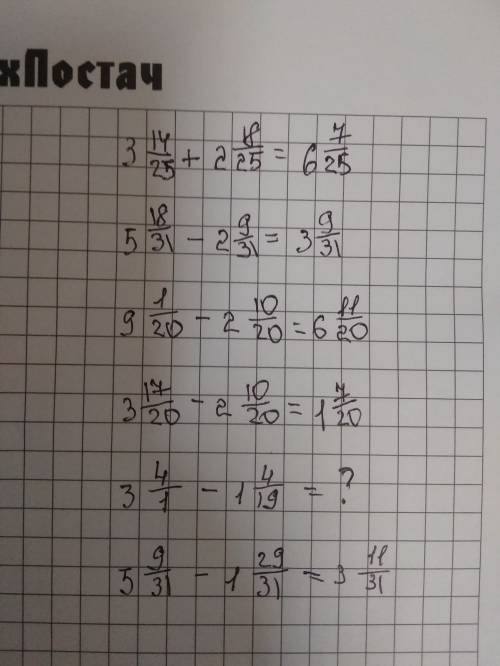 хПостач
3 14/25 + 2 18/25 = 6 7/25
5 18/31 - 2 9/31 = 3 9/31
9 1/20 - 2 10/20 = 6 11/20
3 17/20 - 2 10/20 = 1 7/20
3 4/1 - 1 4/19 = ?
5 9/31 - 1 29/31 = 3 11/31